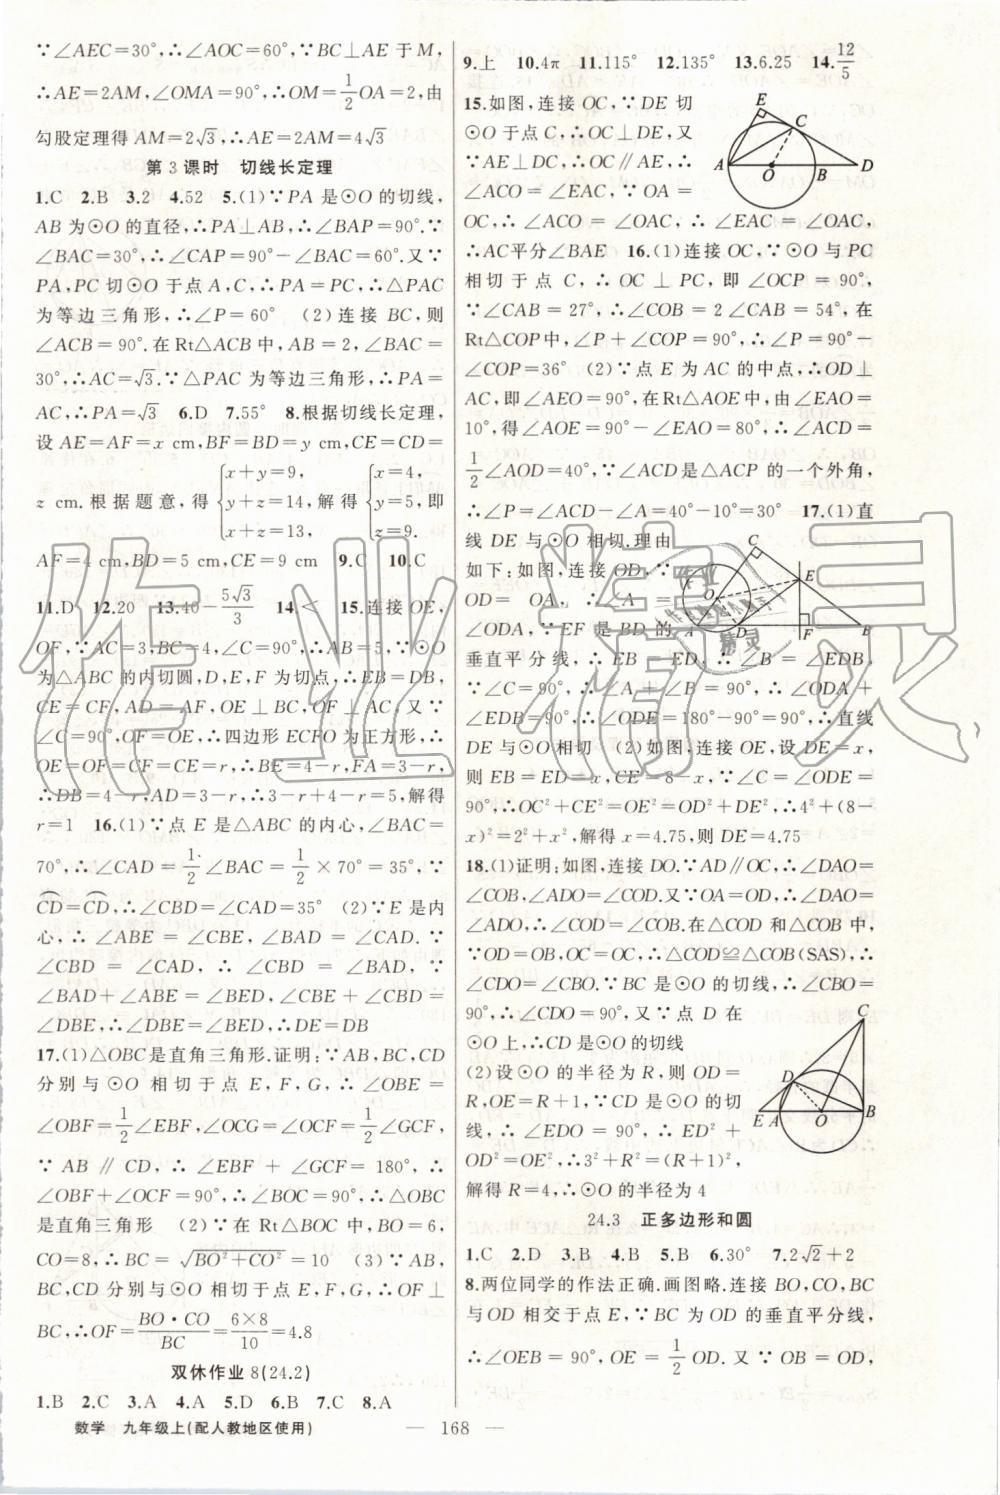 ∵∠AEC=30°,∴∠AOC=60°,∵BC⊥AE于M,
∴AE=2AM,∠OMA=90°,∴OM=1/2OA=2,由
勾股定理得AM=2√3,∴AE=2AM=4√3
第3课时 切线长定理
1.C 2.B 3.2 4.52 5.(1)∵PA是⊙O的切线,
AB为⊙O的直径,∴PA⊥AB,∴∠BAP=90°.∵
∠BAC=30°,∴∠CAP=90°-∠BAC=60°.又∵
PA,PC切⊙O于点A,C,∴PA=PC,∴△PAC
为等边三角形,∴∠P=60° (2)连接BC,则
∠ACB=90°.在Rt△ACB中,AB=2,∠BAC=
30°,∴AC=√3.∵△PAC为等边三角形,∴PA=
AC,∴PA=√3 6.D 7.55° 8.根据切线长定理,
设AE=AF=x cm,BF=BD=y cm,CE=CD=
z cm.根据题意,得{x+y=9, y+z=14, x+z=13, 解得{x=4, y=5, z=9. 即
AF=4 cm,BD=5 cm,CE=9 cm 9.C 10.C
11.D 12.20 13.40-5√3/3 14.< 15.连接OE,
OF,∵AC=3,BC=4,∠C=90°,∴AB=5,∵⊙O
为△ABC的内切圆,D,E,F为切点,∴EB=DB,
CE=CF,AD=AF,OE⊥BC,OF⊥AC.又∵
∠C=90°,OF=OE,∴四边形ECFO为正方形,∴
OE=OF=CF=CE=r,∴BE=4-r,FA=3-r,
∴DB=4-r,AD=3-r,∴3-r+4-r=5,解得
r=1 16.(1)∵点E是△ABC的内心,∠BAC=
70°,∴∠CAD=1/2∠BAC=1/2×70°=35°,∵
CD=CD,∴∠CBD=∠CAD=35° (2)∵E是内
心,∴∠ABE=∠CBE,∠BAD=∠CAD.∵
∠CBD=∠CAD,∴∠CBD=∠BAD,∵
∠BAD+∠ABE=∠BED,∠CBE+∠CBD=
∠DBE,∴∠DBE=∠BED,∴DE=DB
17.(1)△OBC是直角三角形.证明:∵AB,BC,CD
分别与⊙O相切于点E,F,G,∴∠OBE=
∠OBF=1/2∠EBF,∠OCG=∠OCF=1/2∠GCF,
∵AB∥CD,∴∠EBF+∠GCF=180°,∴
∠OBF+∠OCF=90°,∴∠BOC=90°,∴△OBC
是直角三角形 (2)∵在Rt△BOC中,BO=6,
CO=8,∴BC=√(BO²+CO²)=10 (3)∵AB,
BC,CD分别与⊙O相切于点E,F,G,∴OF⊥
BC,∴OF=BO·CO/BC=6×8/10=4.8
双休作业8(24.2)
1.B 2.C 3.A 4.A 5.D 6.B 7.C 8.A
9.上 10.4π 11.115° 12.135° 13.6.25 14.12/5
15.如图,连接OC,∵DE切
⊙O于点C,∴OC⊥DE,又
∵AE⊥DC,∴OC∥AE,∴
∠ACO=∠EAC,∵OA=
OC,∴∠ACO=∠OAC,∴∠EAC=∠OAC,
∴AC平分∠BAE 16.(1)连接OC,∵⊙O与PC
相切于点C,∴OC⊥PC,即∠OCP=90°,
∵∠CAB=27°,∴∠COB=2∠CAB=54°,在
Rt△COP中,∠P+∠COP=90°,∴∠P=90°-
∠COP=36° (2)∵点E为AC的中点,∴OD⊥
AC,即∠AEO=90°,在Rt△AOE中,由∠EAO=
10°,得∠AOE=90°-∠EAO=80°,∴∠ACD=
1/2∠AOD=40°,∵∠ACD是△ACP的一个外角,
∴∠P=∠ACD-∠A=40°-10°=30° 17.(1)直
线DE与⊙O相切.理由
如下:如图,连接OD,∵
OD=OA,∴∠A=
∠ODA,∵EF是BD的
垂直平分线,∴EB=ED,∴∠B=∠EDB,
∵∠C=90°,∴∠A+∠B=90°,∴∠ODA+
∠EDB=90°,∴∠ODE=180°-90°=90°,∴直线
DE与⊙O相切 (2)如图,连接OE,设DE=x,
则EB=ED=x,CE=8-x,∵∠C=∠ODE=
90°,∴OC²+CE²=OE²=OD²+DE²,∴4²+(8-
x)²=2²+x²,解得x=4.75,则DE=4.75
18.(1)证明:如图,连接DO.∵AD∥OC,∴∠DAO=
∠COB,∠ADO=∠COD.又∵OA=OD,∴∠DAO=
∠ADO,∴∠COD=∠COB.在△COD和△COB中,
∵OD=OB,OC=OC,∴△COD≌△COB(SAS),∴
∠CDO=∠CBO.∵BC是⊙O的切线,∴∠CBO=
90°,∴∠CDO=90°.∵点D在
⊙O上,∴CD是⊙O的切线
(2)设⊙O的半径为R,则OD=
R,OE=R+1,∵CD是⊙O的切
线,∴∠EDO=90°,∴ED²+
OD²=OE²,∴3²+R²=(R+1)²,
解得R=4,∴⊙O的半径为4
24.3 正多边形和圆
1.C 2.D 3.B 4.B 5.B 6.30° 7.2√2+2
8.两位同学的作法正确.画图略.连接BO,CO,BC
与OD相交于点E,∵BC为OD的垂直平分线,
∴∠OEB=90°,OE=1/2OD.又∵OB=OD,
数学 九年级上(配人教地区使用)
— 168 —
作业精灵